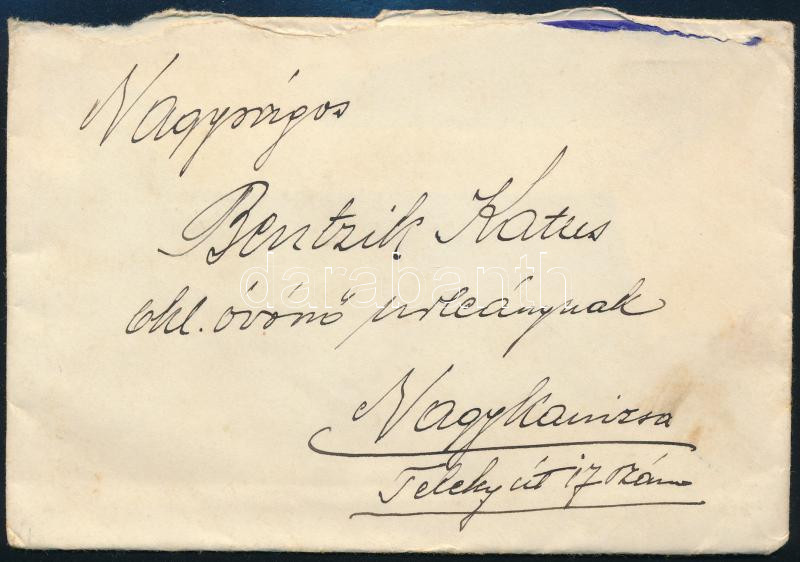 Nagyságos
Bentzik Katus
okl. óvónő urleánynak
Nagykanizsa
Teleky út 17 szám
darabanth